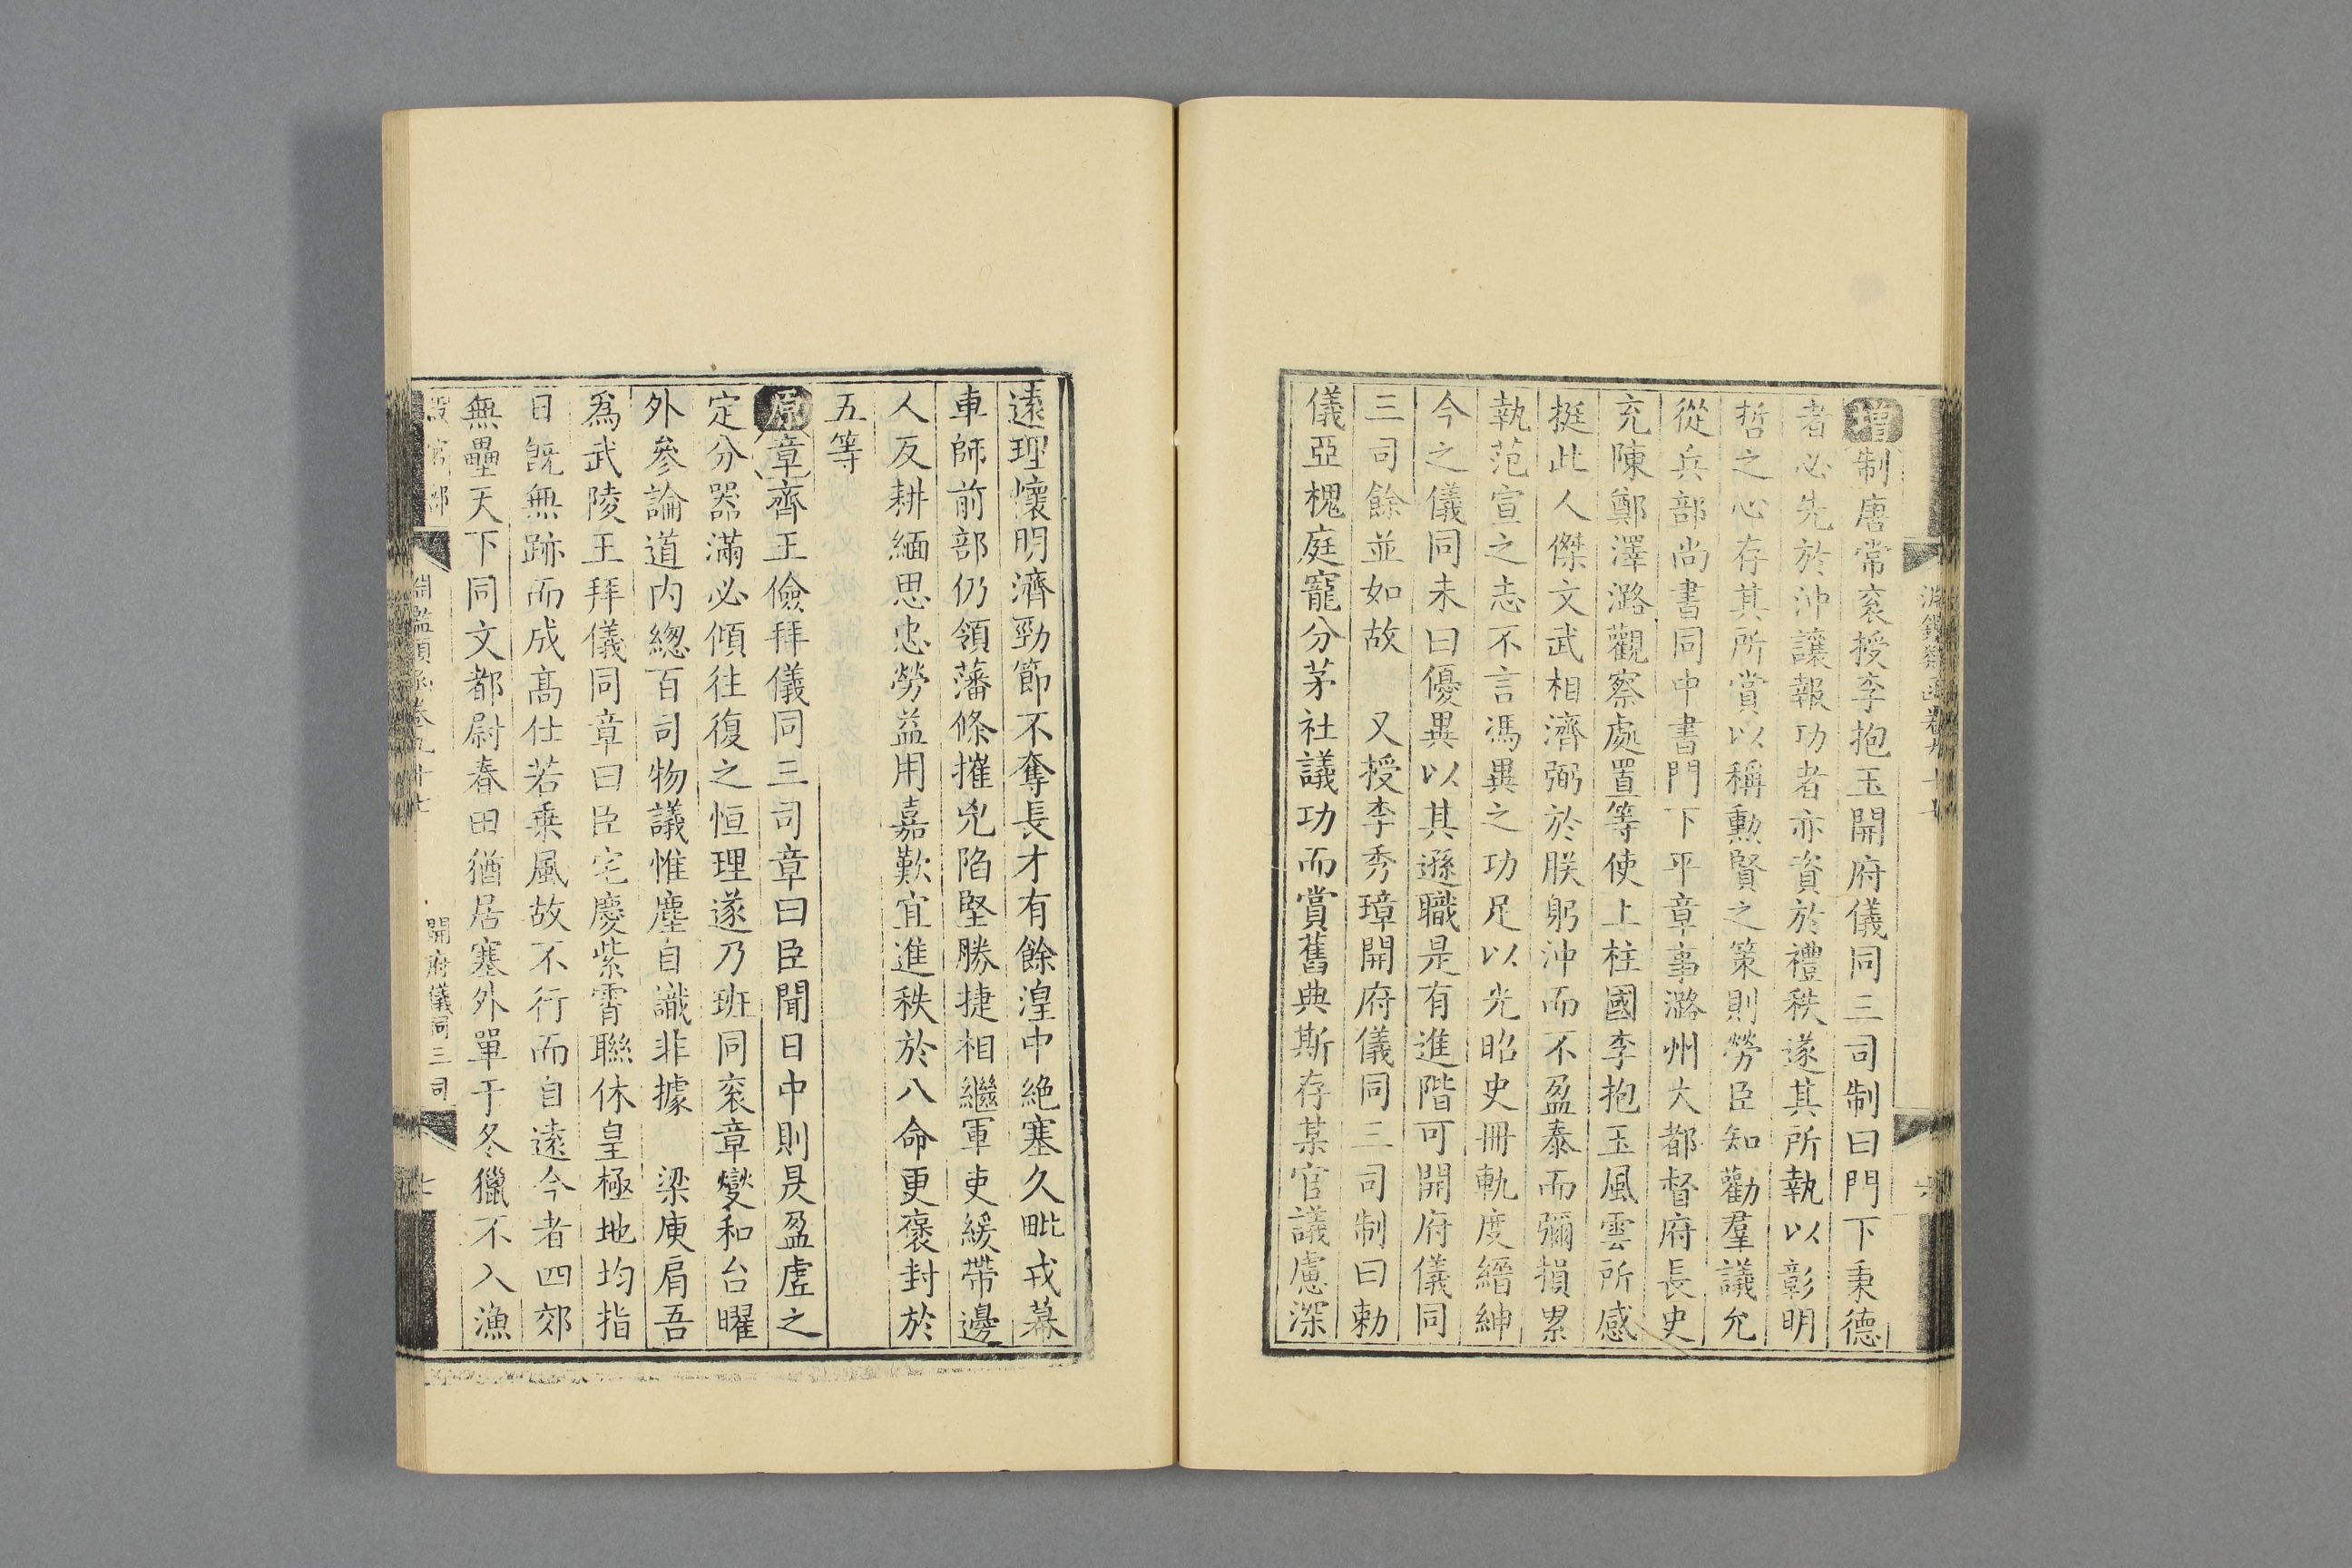 增制唐常衮授李抱玉開府儀同三司制曰門下秉德
者必先於沖讓報功者亦資於禮秩遂其所執以彰明
哲之心存其所賞以稱勲賢之策則勞臣知勸羣議允
從兵部尚書同中書門下平章事潞州大都督府長史
充陳鄭澤潞觀察處置等使上柱國李抱玉風雲所感
挺此人傑文武相濟弼於朕躬沖而不盈泰而彌損累
執范宣之志不言馮異之功足以光昭史冊軌度縉紳
今之儀同未曰優異以其遜職是有進階可開府儀同
三司餘並如故 又授李秀璋開府儀同三司制曰勅
儀亞槐庭寵分茅社議功而賞舊典斯存某官議慮深
遠理懷明濟勁節不奪長才有餘湟中絶塞久毗戎幕
車師前部仍領藩條摧兇陷堅勝捷相繼軍吏緩帶邊
人反耕緬思忠勞益用嘉歎宜進秩於八命更褒封於
五等
原章齊王儉拜儀同三司章曰臣聞日中則昃盈虛之
定分器滿必傾往復之恒理遂乃班同衮章變和台曜
外參論道内緫百司物議惟塵自識非據 梁庾肩吾
爲武陵王拜儀同章曰臣宅慶紫霄聯休皇極地均指
日旣無跡而成髙仕若乗風故不行而自遠今者四郊
無壘天下同文都尉春田猶居塞外單于冬獵不入漁
設官部 淵鑑類函卷九十七 開府儀同三司